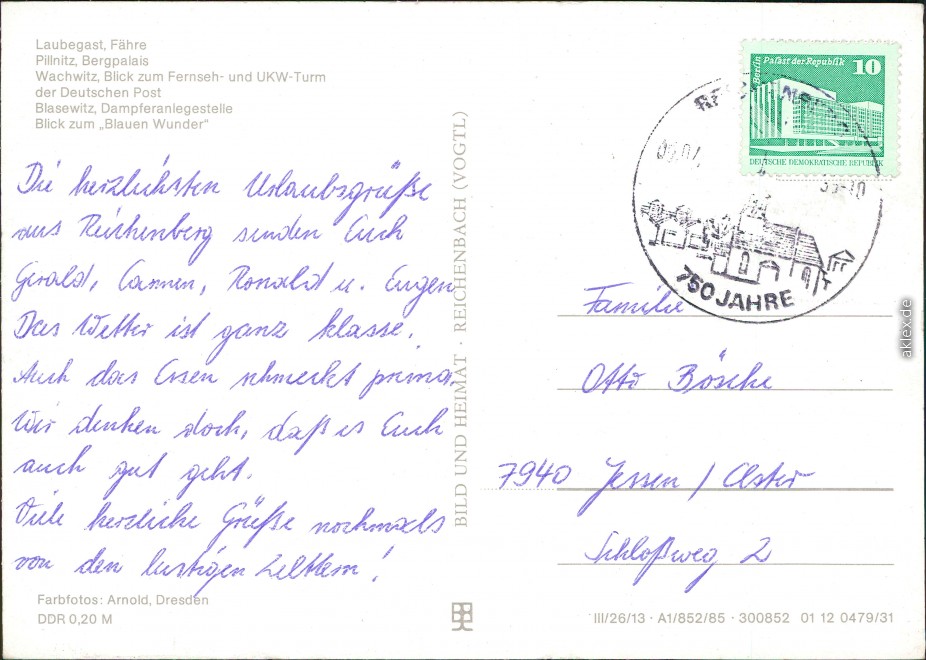 Laubegast, Fähre
Pillnitz, Bergpalais
Wachwitz, Blick zum Fernseh- und UKW-Turm
der Deutschen Post
Blasewitz, Dampferanlegestelle
Blick zum „Blauen Wunder"
Die herzlichsten Urlaubsgrüße
aus Reichenberg senden Euch
Gerald, Carmen, Ronald u. Eugen
Das Wetter ist ganz klasse.
Auch das Essen schmeckt prima.
Wir denken doch, daß es Euch
auch gut geht.
Viele herzliche Grüße nochmals
von den lustigen Zeltlern!
Farbfotos: Arnold, Dresden
DDR 0,20 M
BILD UND HEIMAT · REICHENBACH (VOGTL)
Berlin Palast der Republik 10
DEUTSCHE DEMOKRATISCHE REPUBLIK
750 JAHRE
Familie
Otto Bösche
7940 Jessen / Elster
Schloßweg 2
III/26/13 · A1/852/85 · 300852 01 12 0479/31
aklex.de